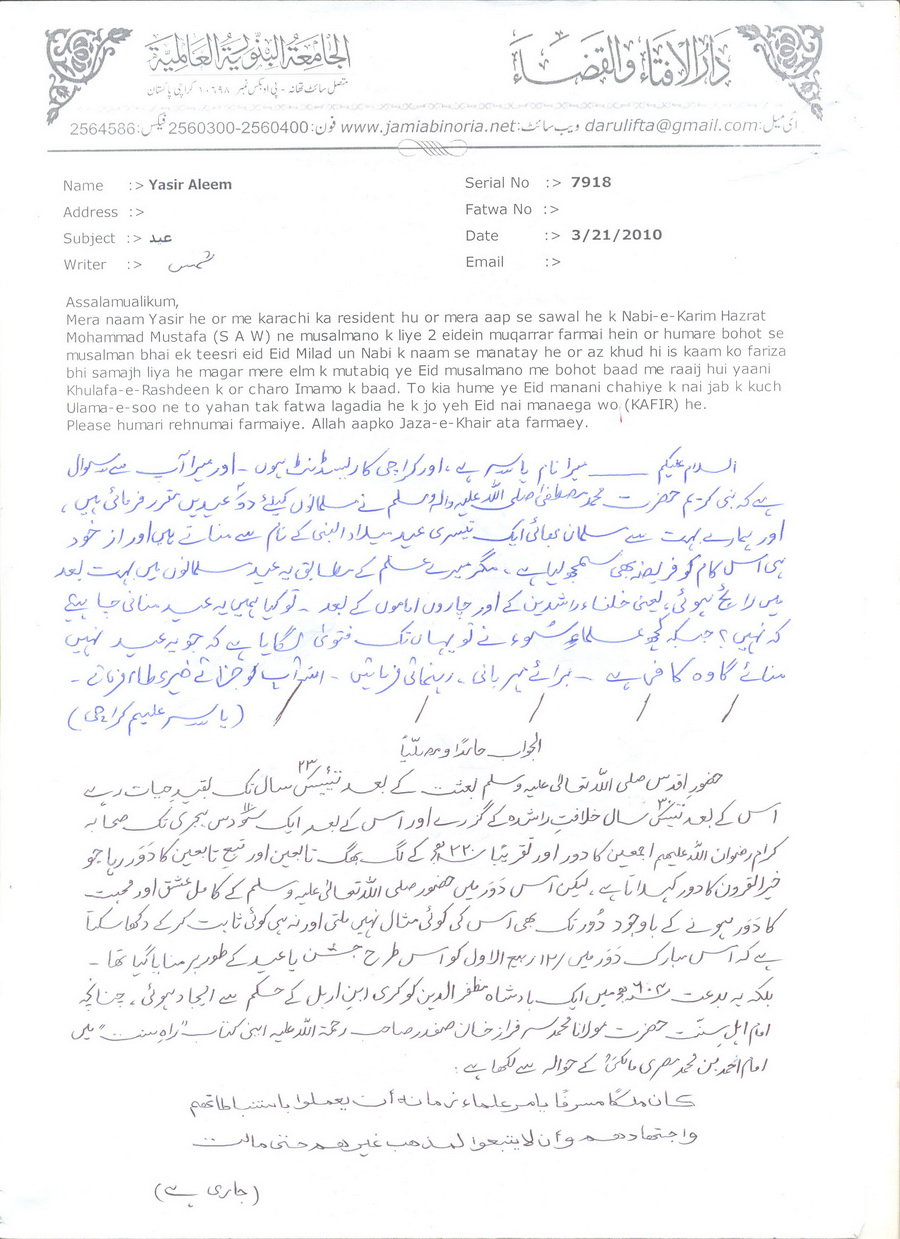 دار الافتاء والقضاء
الجامعة البنورية العالمية
متصل سائٹ تھانہ - پی او بکس نمبر ۱۰۶۹۸ کراچی پاکستان
ای میل: darulifta@gmail.com ویب سائٹ: www.jamiabinoria.net فون: 2560300-2560400 فیکس: 2564586
Name :> Yasir Aleem
Serial No :> 7918
Address :>
Fatwa No :>
Subject :> عید
Date :> 3/21/2010
Writer :> شمس
Email :>
Assalamualikum,
Mera naam Yasir he or me karachi ka resident hu or mera aap se sawal he k Nabi-e-Karim Hazrat
Mohammad Mustafa (S A W) ne musalmano k liye 2 eidein muqarrar farmai hein or humare bohot se
musalman bhai ek teesri eid Eid Milad un Nabi k naam se manatay he or az khud hi is kaam ko fariza
bhi samajh liya he magar mere elm k mutabiq ye Eid musalmano me bohot baad me raaij hui yaani
Khulafa-e-Rashdeen k or charo Imamo k baad. To kia hume ye Eid manani chahiye k nai jab k kuch
Ulama-e-soo ne to yahan tak fatwa lagadia he k jo yeh Eid nai manaega wo (KAFIR) he.
Please humari rehnumai farmaiye. Allah aapko Jaza-e-Khair ata farmaey.
السلام علیکم ــــ میرا نام یاسر ہے، اور کراچی کا ریسیڈنٹ ہوں - اور میرا آپ سے سوال
ہے کہ نبی کریم حضرت محمد مصطفیٰ صلی اللہ علیہ والہ وسلم نے مسلمانوں کیلئے دو ۲ عیدیں مقرر فرمائی ہیں،
اور ہمارے بہت سے مسلمان بھائی ایک تیسری عید میلاد النبی کے نام سے مناتے ہیں اور از خود
ہی اس کام کو فریضہ بھی سمجھ لیا ہے، مگر میرے علم کے مطابق یہ عید مسلمانوں میں بہت بعد
میں رائج ہوئی، یعنی خلفاء راشدین کے اور چاروں اماموں کے بعد - تو کیا ہمیں یہ عید منانی چاہیئے
کہ نہیں؟ جبکہ کچھ علماءِ سُوء نے تو یہاں تک فتویٰ لگایا ہے کہ جو یہ عید نہیں
منائے گا وہ کافر ہے - برائے مہربانی، رہنمائی فرمائیں - اللہ آپ کو جزائے خیر عطاء فرمائے -
(یاسر علیم کراچی)
الجواب حامدًا ومصلّیاً
حضور اقدس صلی اللہ تعالیٰ علیہ وسلم بعثت کے بعد تئیس ۲۳ سال تک بقید حیات رہے
اس کے بعد تیس ۳۰ سال خلافتِ راشدہ کے گزرے اور اس کے بعد ایک سو دس ہجری تک صحابہ
کرام رضوان اللہ علیھم اجمعین کا دور اور تقریبًا ۲۲۰ھ کے لگ بھگ تابعین اور تبع تابعین کا دَور رہا جو
خیر القرون کا دور کہلاتا ہے، لیکن اس دَور میں حضور صلی اللہ تعالیٰ علیہ وسلم کے کامل عشق اور محبت
کا دَور ہونے کے باوجود دُور تک بھی اس کی کوئی مثال نہیں ملتی اور نہ ہی کوئی ثابت کر کے دکھا سکتا
ہے کہ اس مبارک دَور میں ۱۲/ ربیع الاول کو اس طرح جشن یا عید کے طور پر منایا گیا تھا -
بلکہ یہ بدعت ۶۰۴ھ میں ایک بادشاہ مظفر الدین کوکری ابن اربل کے حکم سے ایجاد ہوئی، چنانچہ
امام اہل سنّت حضرت مولانا محمد سرفراز خان صفدر صاحب رحمۃ اللہ علیہ اپنی کتاب "راہِ سنت" میں
امام احمد بن محمد مصری مالکیؒ کے حوالہ سے لکھا ہے:
کان ملکًا مسرفًا یأمر علماء زمانه أن یعملوا باستنباطاتهم
واجتهادهم وأن لا یتبعوا لمذهب غیرهم حتی مالت
(جاری ہے)